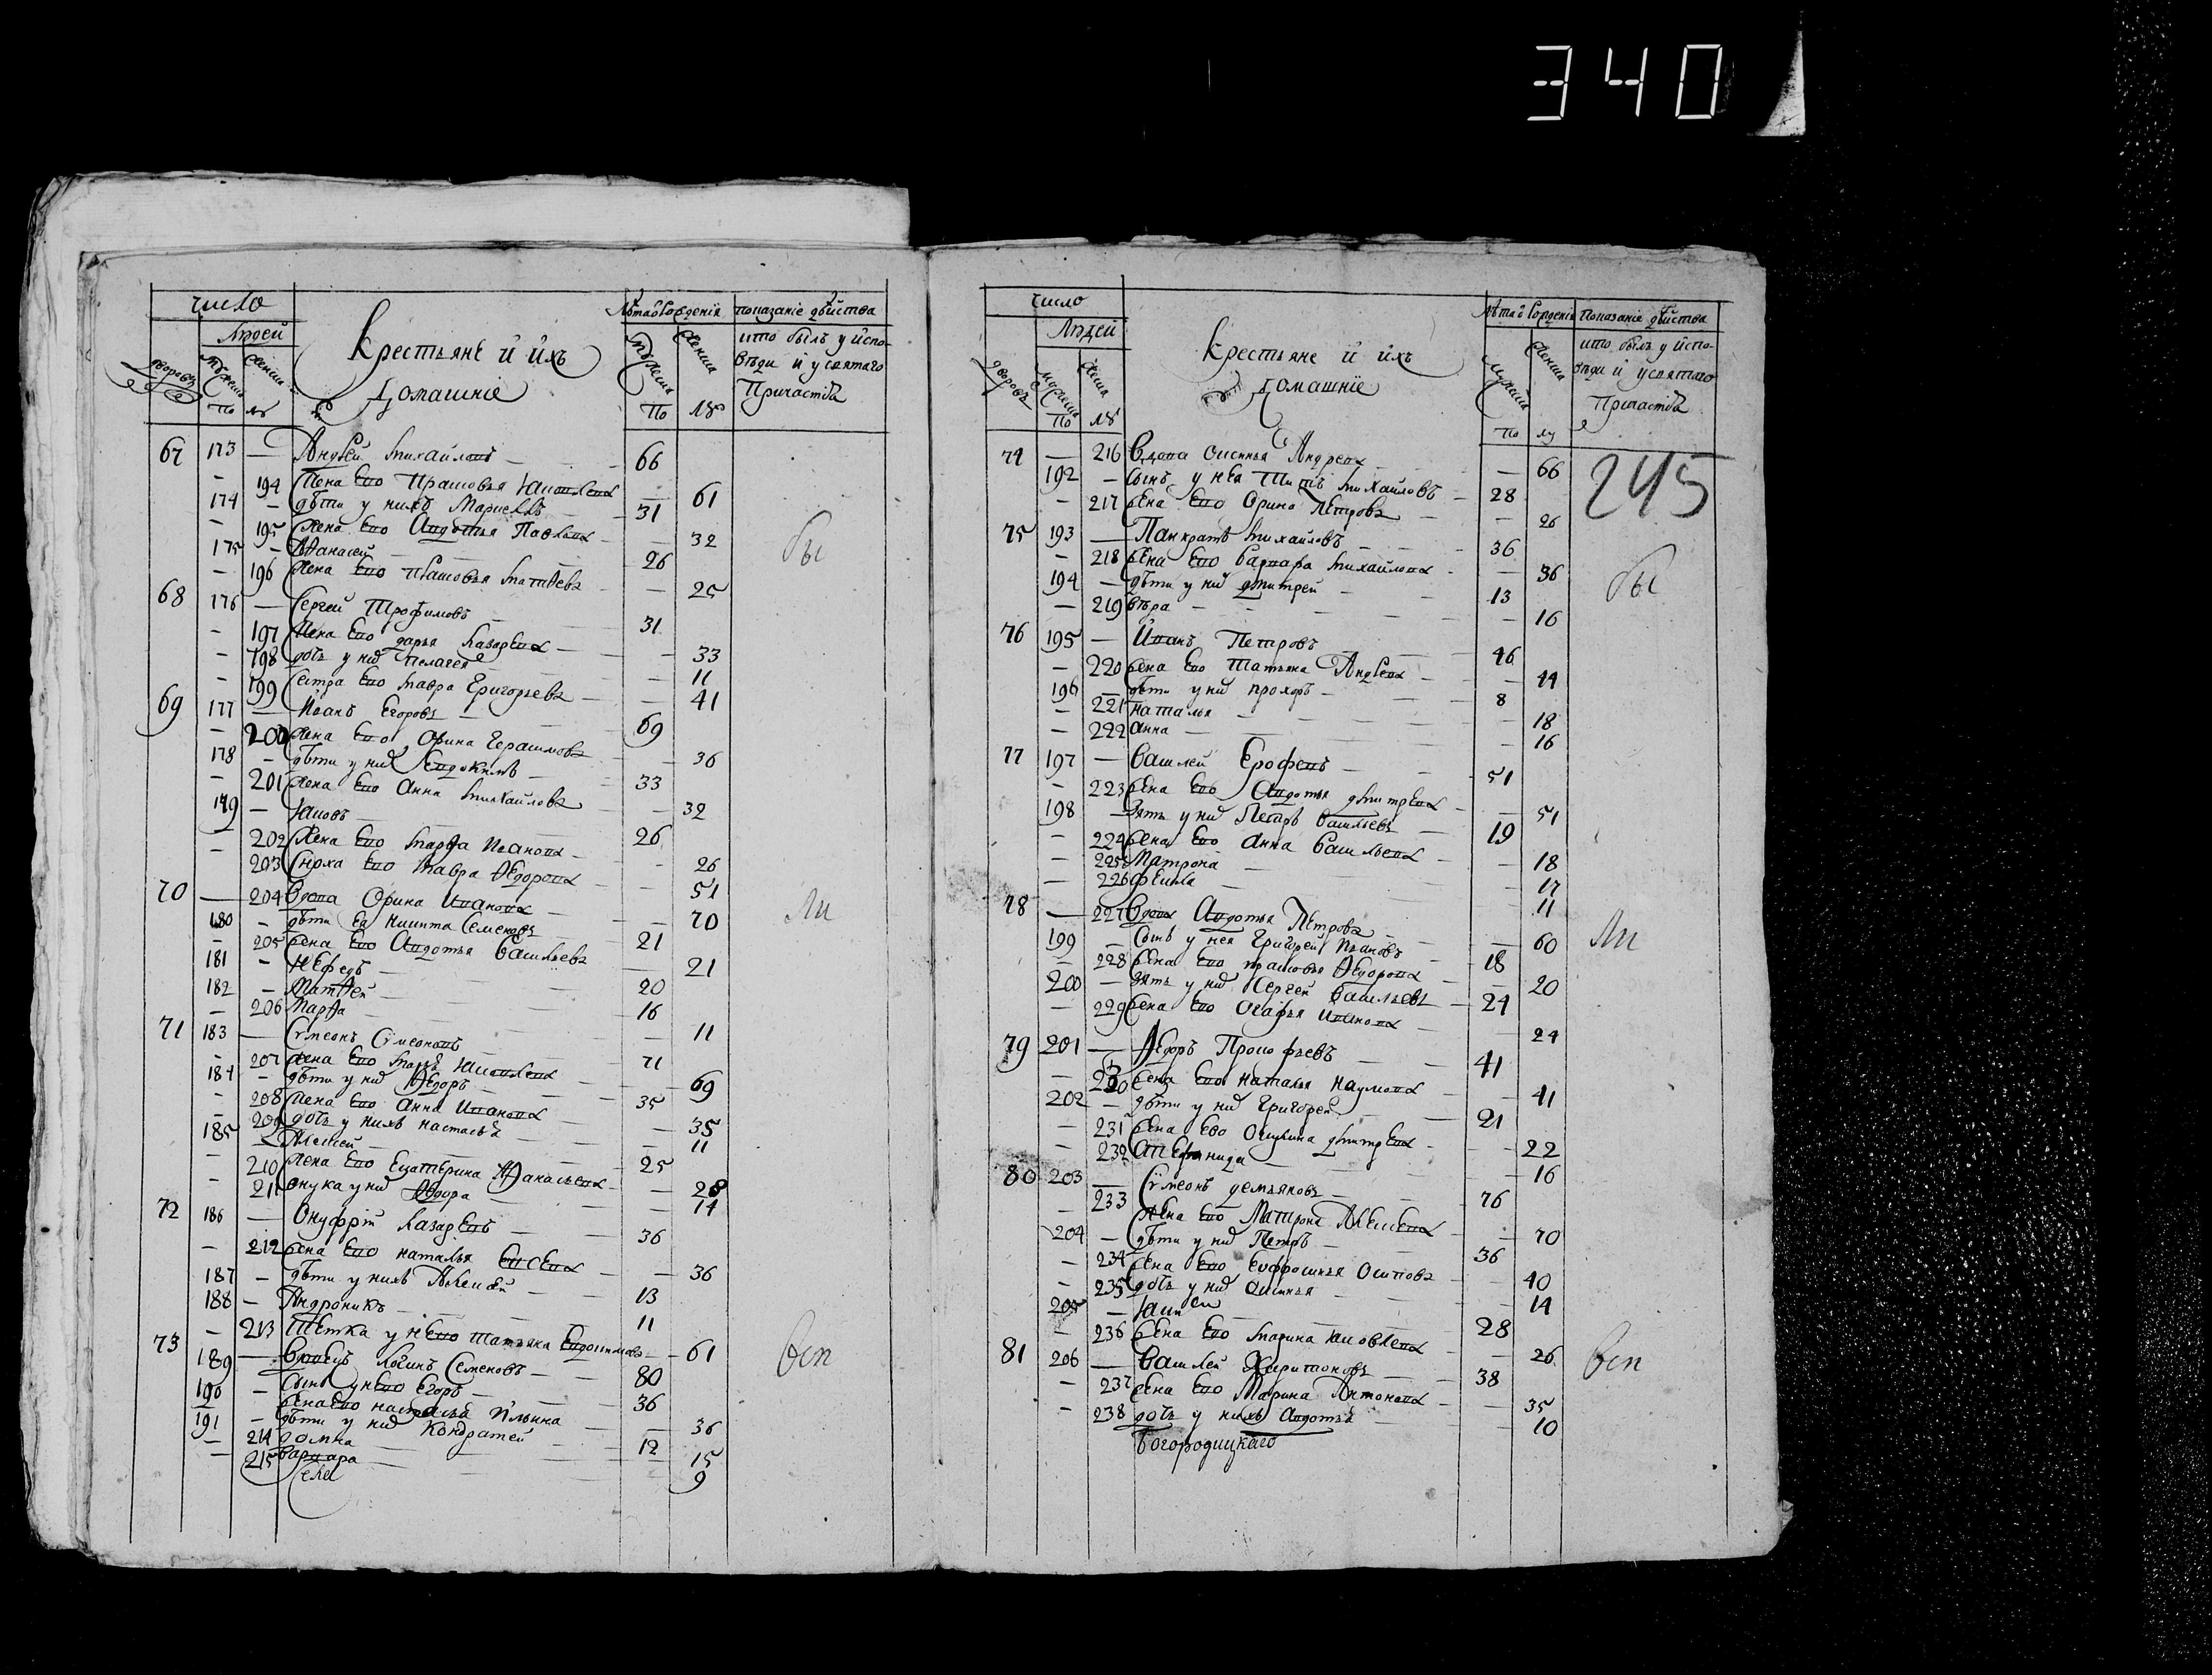 340
число
Людей
Крестьяне и ихъ
Домашніе
Лѣта ѿ рожденія
показаніе дѣйства
кто былъ у испо-
вѣди и у святаго
Причастія
дворовъ
мужеска
женска
По лъ
По лъ
67 173 — Андрей Михайловъ — 66
- 194 Жена Ево Прасковья Яковлева — 61
174 - дѣти у нихъ — 31
- 195 Жена Ево Авдотья Павлова — 32
175 - Афанасей — 26
- 196 Жена Ево Прасковья Матфѣева — 25
бы
68 176 — Сергей Трофимовъ — 31
- 197 Жена Ево дарья Лазарева — 33
- 198 дочь у нихъ Пелагея — 11
- 199 Сестра Ево Мавра Григорьева — 41
69 177 — Иванъ Егоровъ — 69
- 200 Жена Ево Орина Герасимова — 36
178 - дѣти у нихъ Евдокимъ — 33
- 201 Жена Ево Анна Михайлова — 32
179 - Яковъ — 26
- 202 Жена Ево Марфа Иванова — 26
- 203 Сноха Ево Мавра Федорова — 51
70 — 204 Вдова Орина Иванова — 70
ли
180 - дѣти Ея Никита Семеновъ — 21
- 205 Жена Ево Авдотья Васильева — 21
181 - Нефедъ — 20
182 - Матфей — 16
- 206 Марфа — 11
71 183 — Сѵмеонъ Сѵмеоновъ — 71
- 207 Жена Ево Яковлева — 69
184 - дѣти у нихъ Федоръ — 35
- 208 Жена Ево Анна Иванова — 35
- 209 дочь у нихъ настасья — 11
185 - Алексей — 25
- 210 Жена Ево Екатерина Афанасьева — 28
- 211 внука у нихъ Федора — 14
72 186 — Онуфрій Лазаревъ — 36
- 212 Жена Ево наталья Евсева — 36
187 - дѣти у нихъ Алексей — 13
188 - Андроникъ — 11
- 213 Тетка у нево татьяна Евдокимова — 61
73 189 — Вдовецъ Логинъ Семеновъ — 80
всп
190 - Сынъ у нево Егоръ — 36
Жена Ево настасья Ильина — 36
191 - дѣти у нихъ Кондратей — 12
- 214 домна — 15
- 215 варвара — 9
Села
число
Людей
Крестьяне и ихъ
домашніе
Лѣта ѿ рожденія
Показаніе дѣйства
кто былъ у испо-
вѣди и у святаго
Причастія
дворовъ
мужеска
женска
По лъ
По лъ
74 — 216 Вдова Аксинья Андрева — 66
245
192 - Сынъ у нея Титъ Михайловъ — 28
- 217 Жена Ево Орина Петрова — 26
75 193 — Панкратъ Михайловъ — 36
- 218 Жена Ево Варвара Михайлова — 36
бы
194 - дѣти у нихъ дмитрей — 13
- 219 вѣра — 16
76 195 — Иванъ Петровъ — 46
- 220 Жена Ево Татьяна Андрева — 44
196 - дѣти у нихъ прохоръ — 8
- 221 наталья — 18
- 222 анна — 16
77 197 — Василей Ерофевъ — 51
- 223 Жена Ево Авдотья дмитрева — 51
198 - Зять у нихъ Петръ Васильевъ — 19
- 224 Жена Ево анна Васильева — 18
- 225 Матрона — 17
- 226 Фекла — 11
78 — 227 Вдова Авдотья Петрова — 60
ли
199 - Сынъ у нея Григорей Ивановъ — 18
- 228 Жена Ево прасковья Федорова — 20
200 - Зять у нихъ Сергей Васильевъ — 24
- 229 Жена Ево Агафья Иванова — 24
79 201 — Федоръ Прокофьевъ — 41
- 230 Жена Ево наталья наумова — 41
202 - дѣти у нихъ Григорей — 21
- 231 Жена Ево Акулина дмитрева — 22
- 232 Степанида — 16
80 203 — Сѵмеонъ демьяновъ — 76
- 233 Жена Ево Матрона Алексеева — 70
204 - дѣти у нихъ Петръ — 36
- 234 Жена Ево Евфросинья Осипова — 40
- 235 дочь у нихъ Аксинья — 14
205 - — 28
- 236 Жена Ево Марина Яковлева — 26
81 206 — Василей Харитоновъ — 38
всп
- 237 Жена Ево Марина Антонова — 35
- 238 дочь у нихъ Авдотья — 10
Богородицкаго